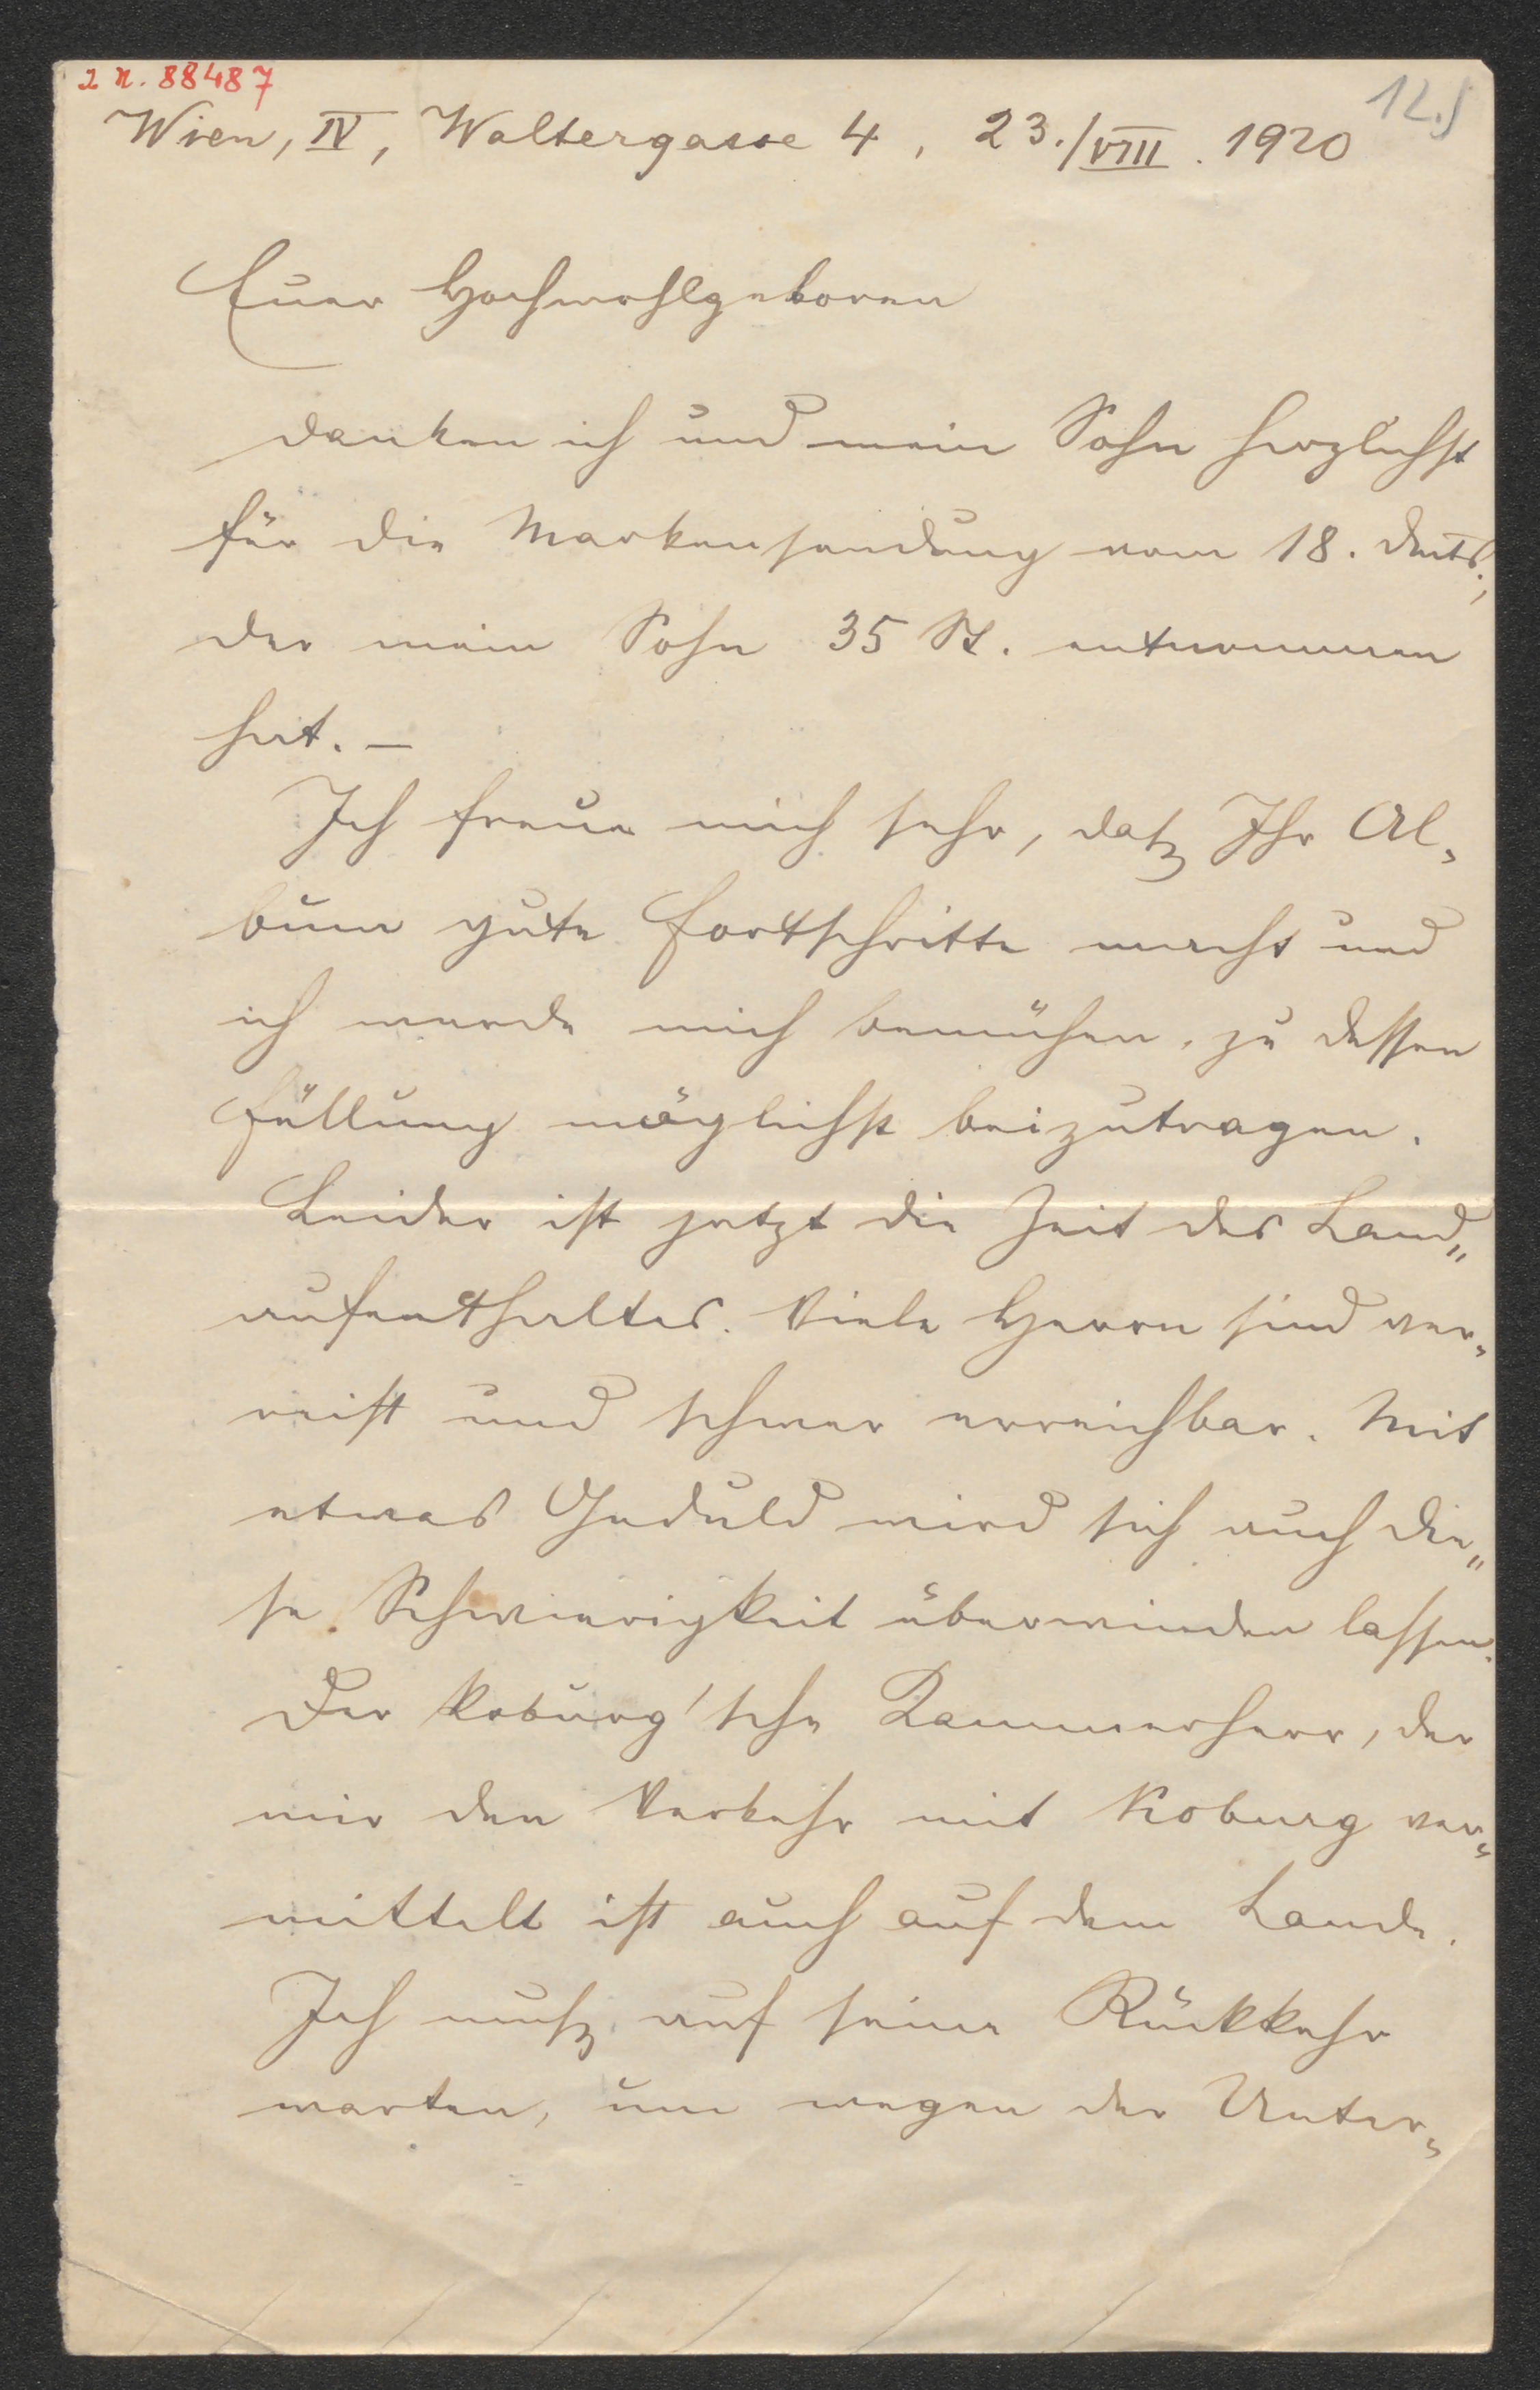 I. N. 88487
12.)
Wien, IV, Waltergasse 4, 23./VIII. 1920
Euer Hochwohlgeboren
danken ich und mein Sohn herzlichst
für die Markensendung vom 18. dMts.,
der mein Sohn 35 St. entnommen
hat. —
Ich freue mich sehr, daß Ihr Al-
bum gute Fortschritte macht und
ich werde mich bemühen, zu dessen
Füllung möglichst beizutragen.
Leider ist jetzt die Zeit des Land-
aufenthaltes. Viele Herrn sind ver-
reist und schwer erreichbar. Mit
etwas Geduld wird sich auch die-
se Schwierigkeit überwinden lassen.
Der Koburg'sche Kammerherr, der
mir den Verkehr mit Koburg ver-
mittelt ist auch auf dem Lande.
Ich muß auf seine Rückkehr
warten, um wegen der Unter-